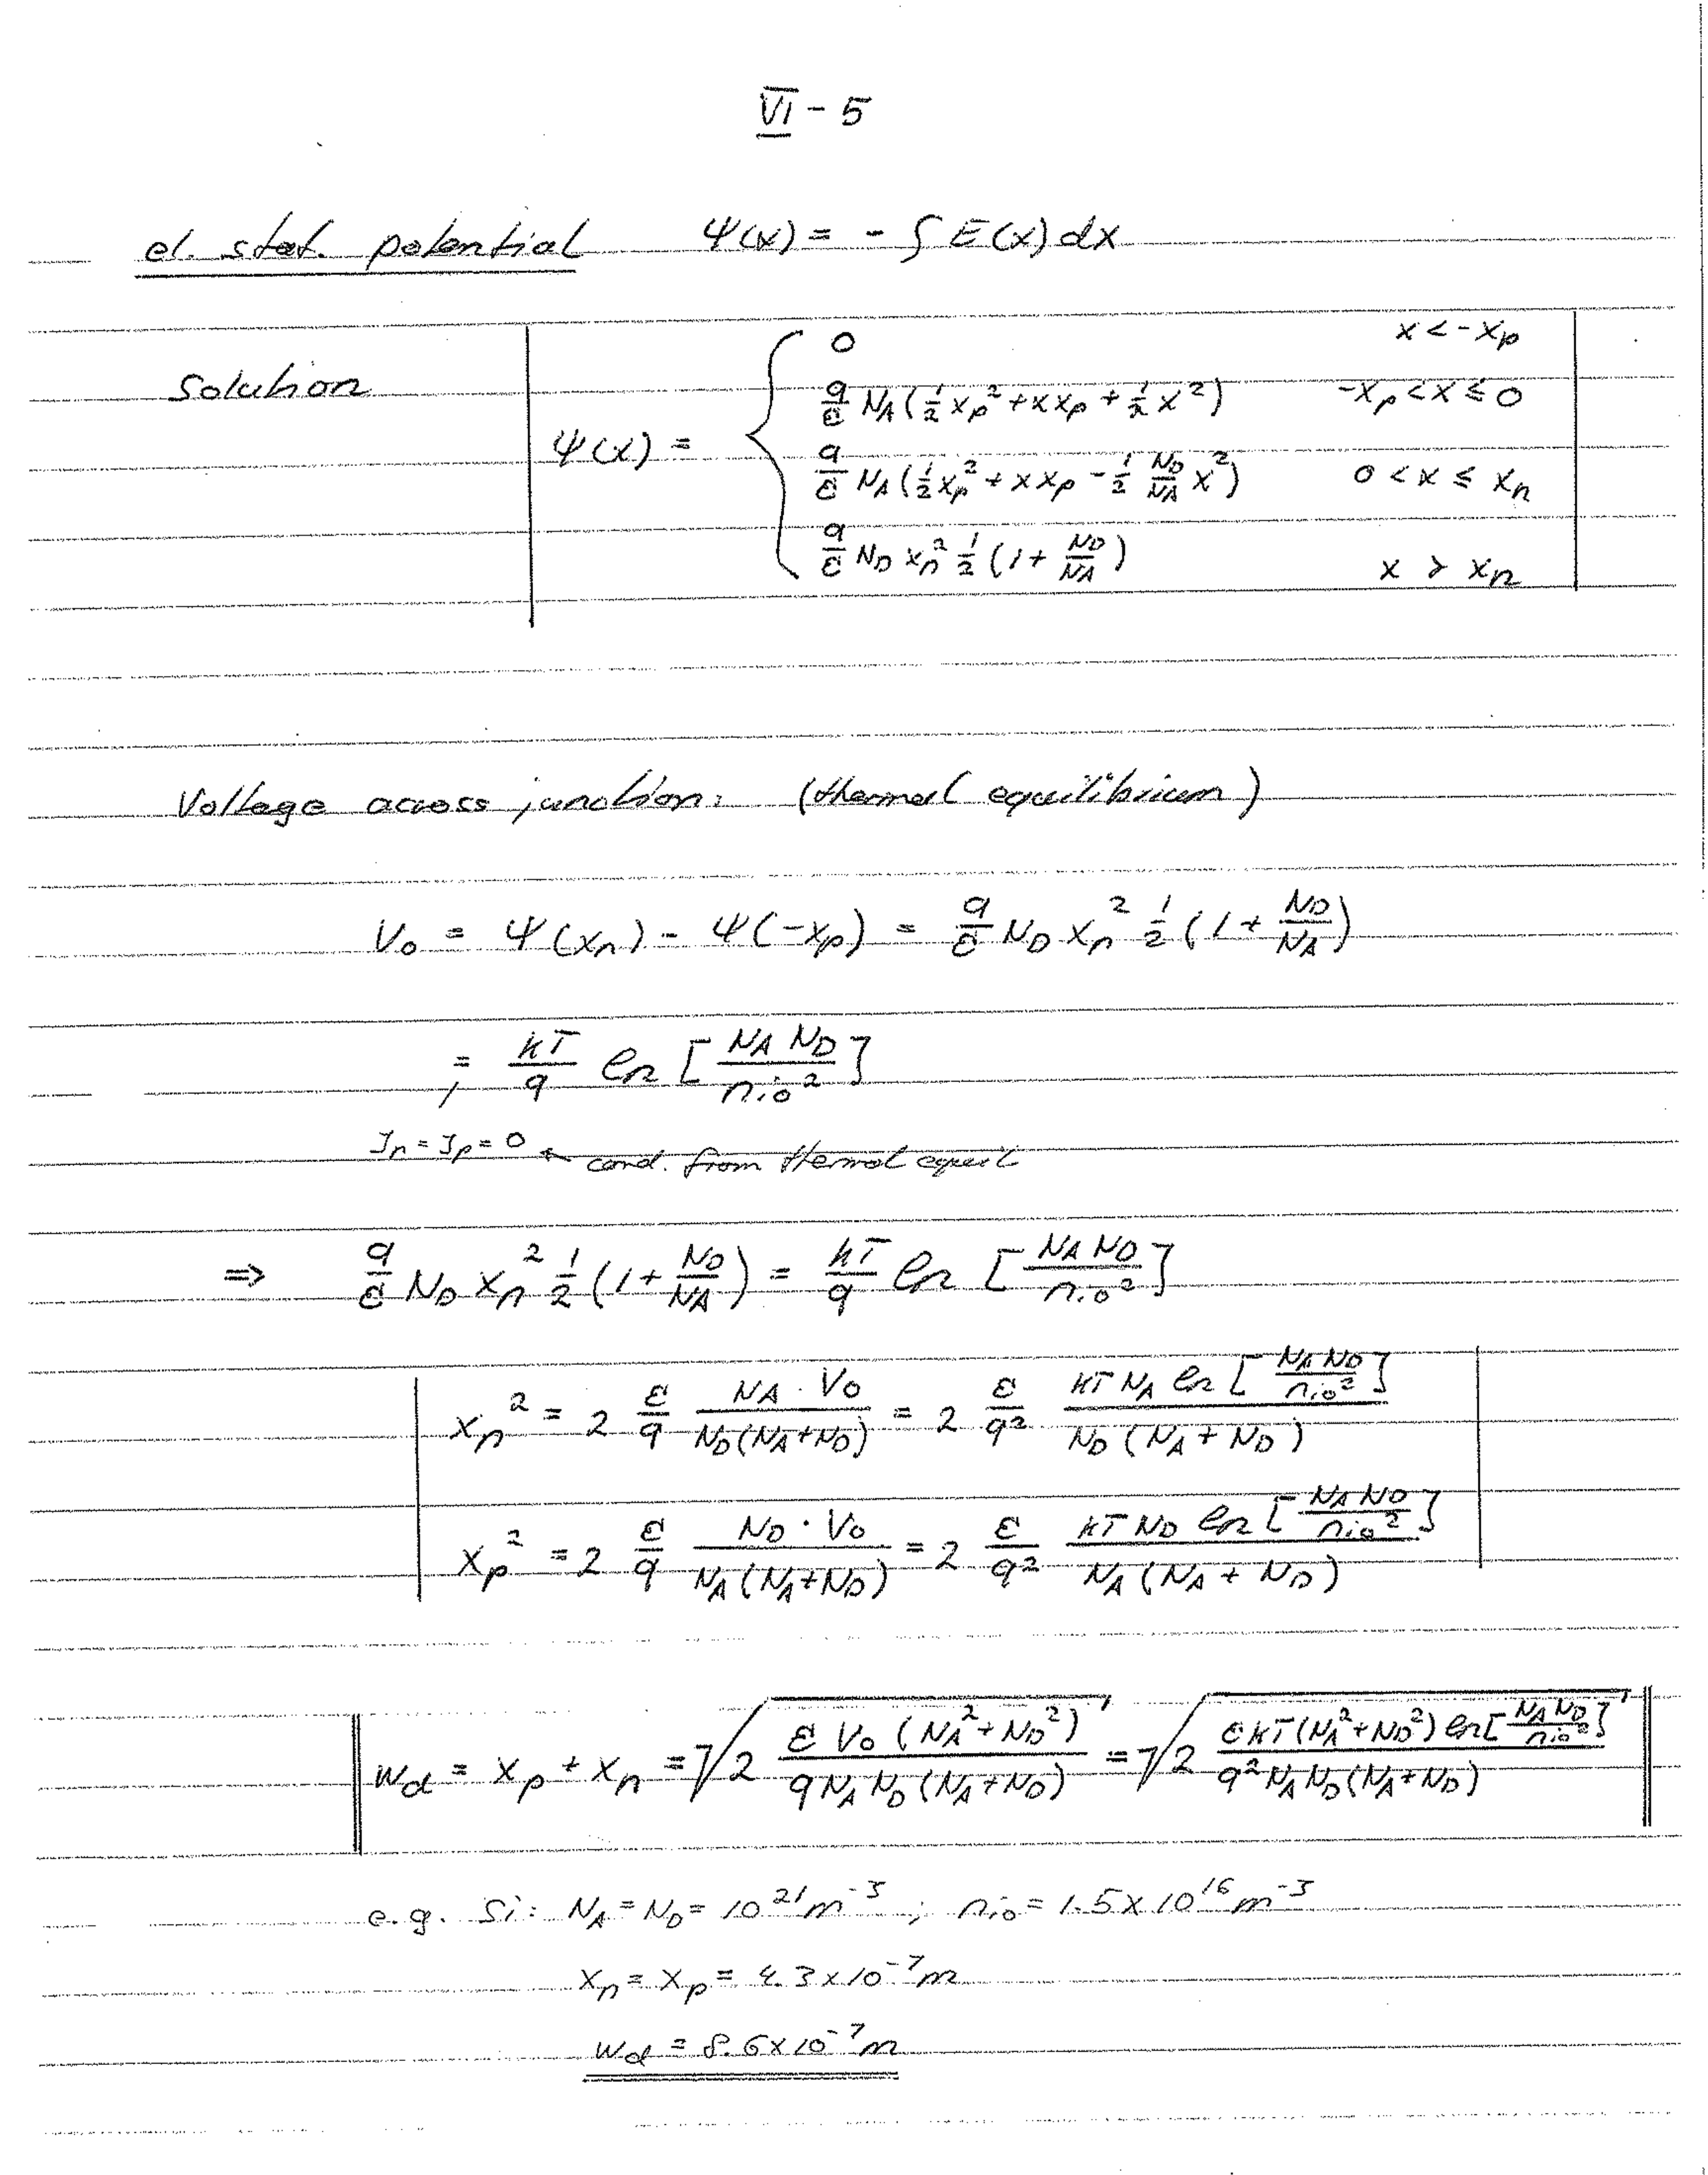 VI - 5
el. stat. potential Ψ(x) = - ∫ E(x) dx
Solution Ψ(x) = {
0 x < -xp
q/ε NA (1/2 xp² + x xp + 1/2 x²) -xp < x ≤ 0
q/ε NA (1/2 xp² + x xp - 1/2 ND/NA x²) 0 < x ≤ xn
q/ε ND xn² 1/2 (1 + ND/NA) x > xn
Voltage across junction: (thermal equilibrium)
V0 = Ψ(xn) - Ψ(-xp) = q/ε ND xn² 1/2 (1 + ND/NA)
= kT/q ln [NA ND / nio²]
Jn = Jp = 0 ← cond. from thermal equil
⇒ q/ε ND xn² 1/2 (1 + ND/NA) = kT/q ln [NA ND / nio²]
xn² = 2 ε/q NA · V0 / ND (NA + ND) = 2 ε/q² kT NA ln [NA ND / nio²] / ND (NA + ND)
xp² = 2 ε/q ND · V0 / NA (NA + ND) = 2 ε/q² kT ND ln [NA ND / nio²] / NA (NA + ND)
wd = xp + xn = √(2 ε V0 (NA² + ND²) / q NA ND (NA + ND)) = √(2 ε kT (NA² + ND²) ln [NA ND / nio²] / q² NA ND (NA + ND))
e.g. Si: NA = ND = 10²¹ m⁻³ ; nio = 1.5 x 10¹⁶ m⁻³
xn = xp = 4.3 x 10⁻⁷ m
wd = 8.6 x 10⁻⁷ m